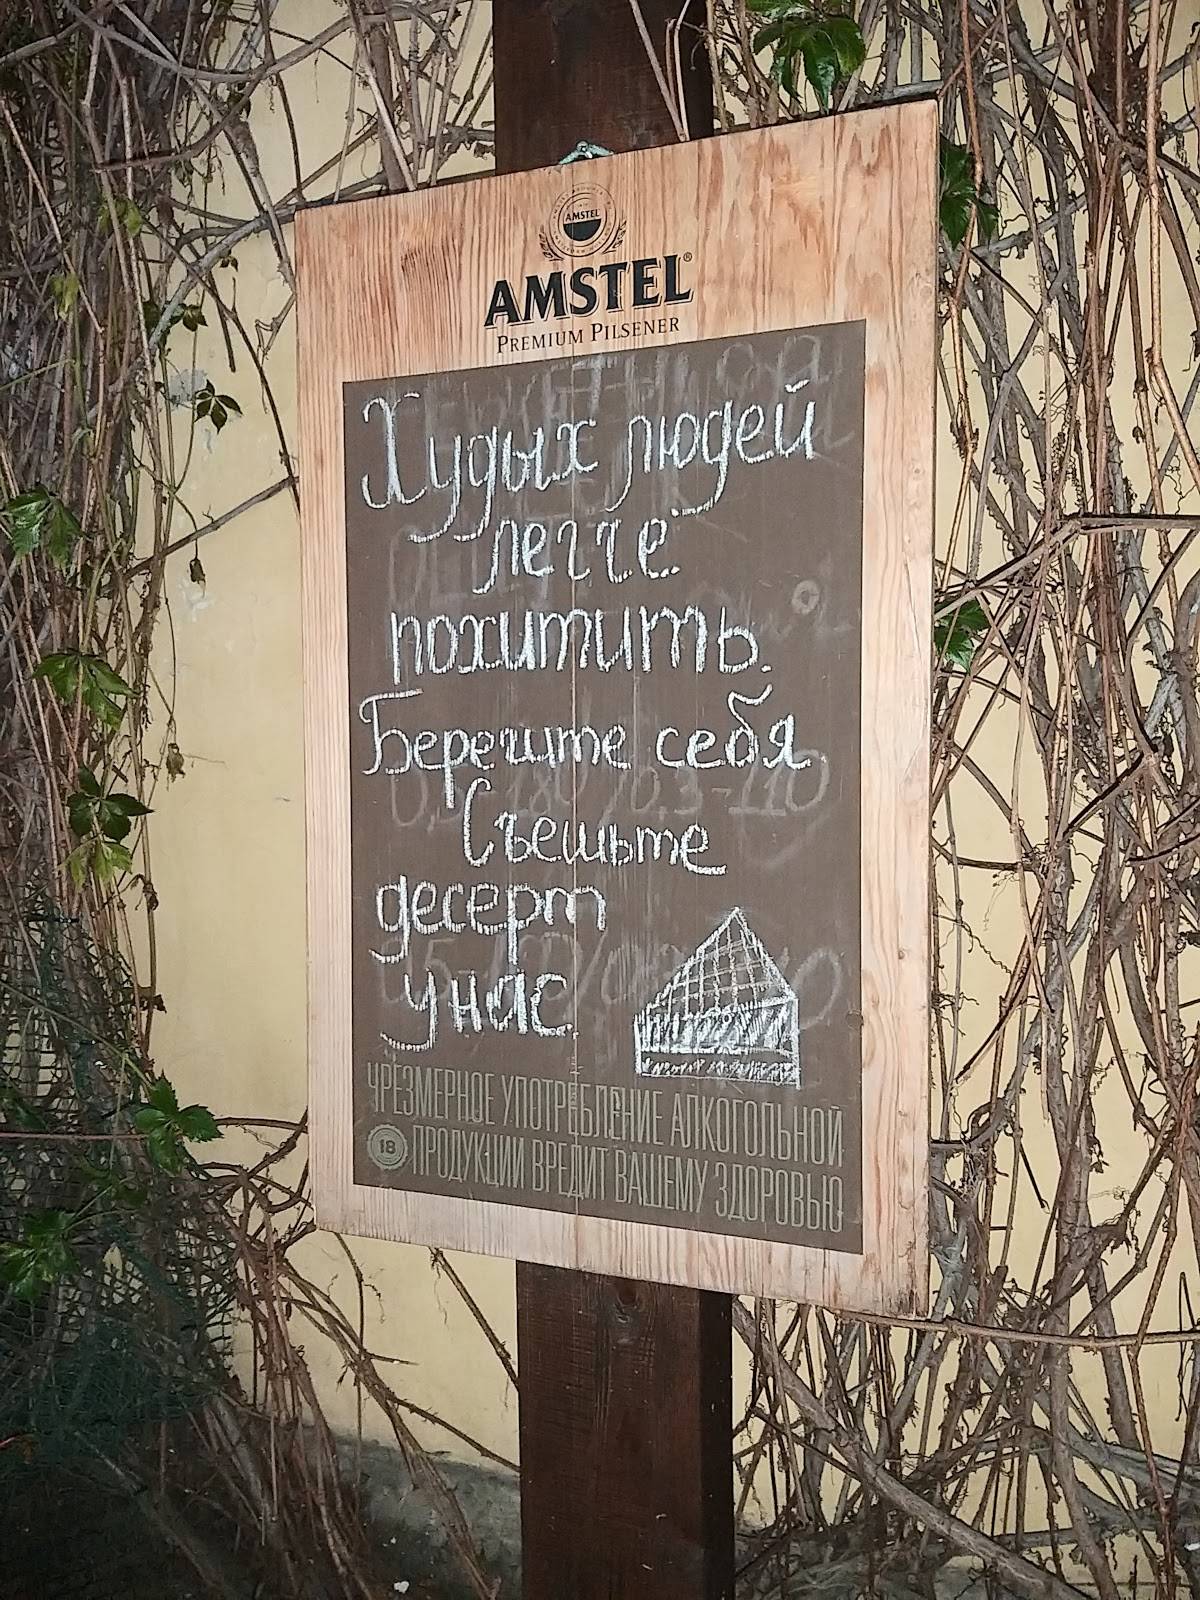 AMSTEL
AMSTEL®
PREMIUM PILSENER
Худых людей
легче
похитить.
Берегите себя
Съешьте
десерт
у нас.
ЧРЕЗМЕРНОЕ УПОТРЕБЛЕНИЕ АЛКОГОЛЬНОЙ
18 ПРОДУКЦИИ ВРЕДИТ ВАШЕМУ ЗДОРОВЬЮ